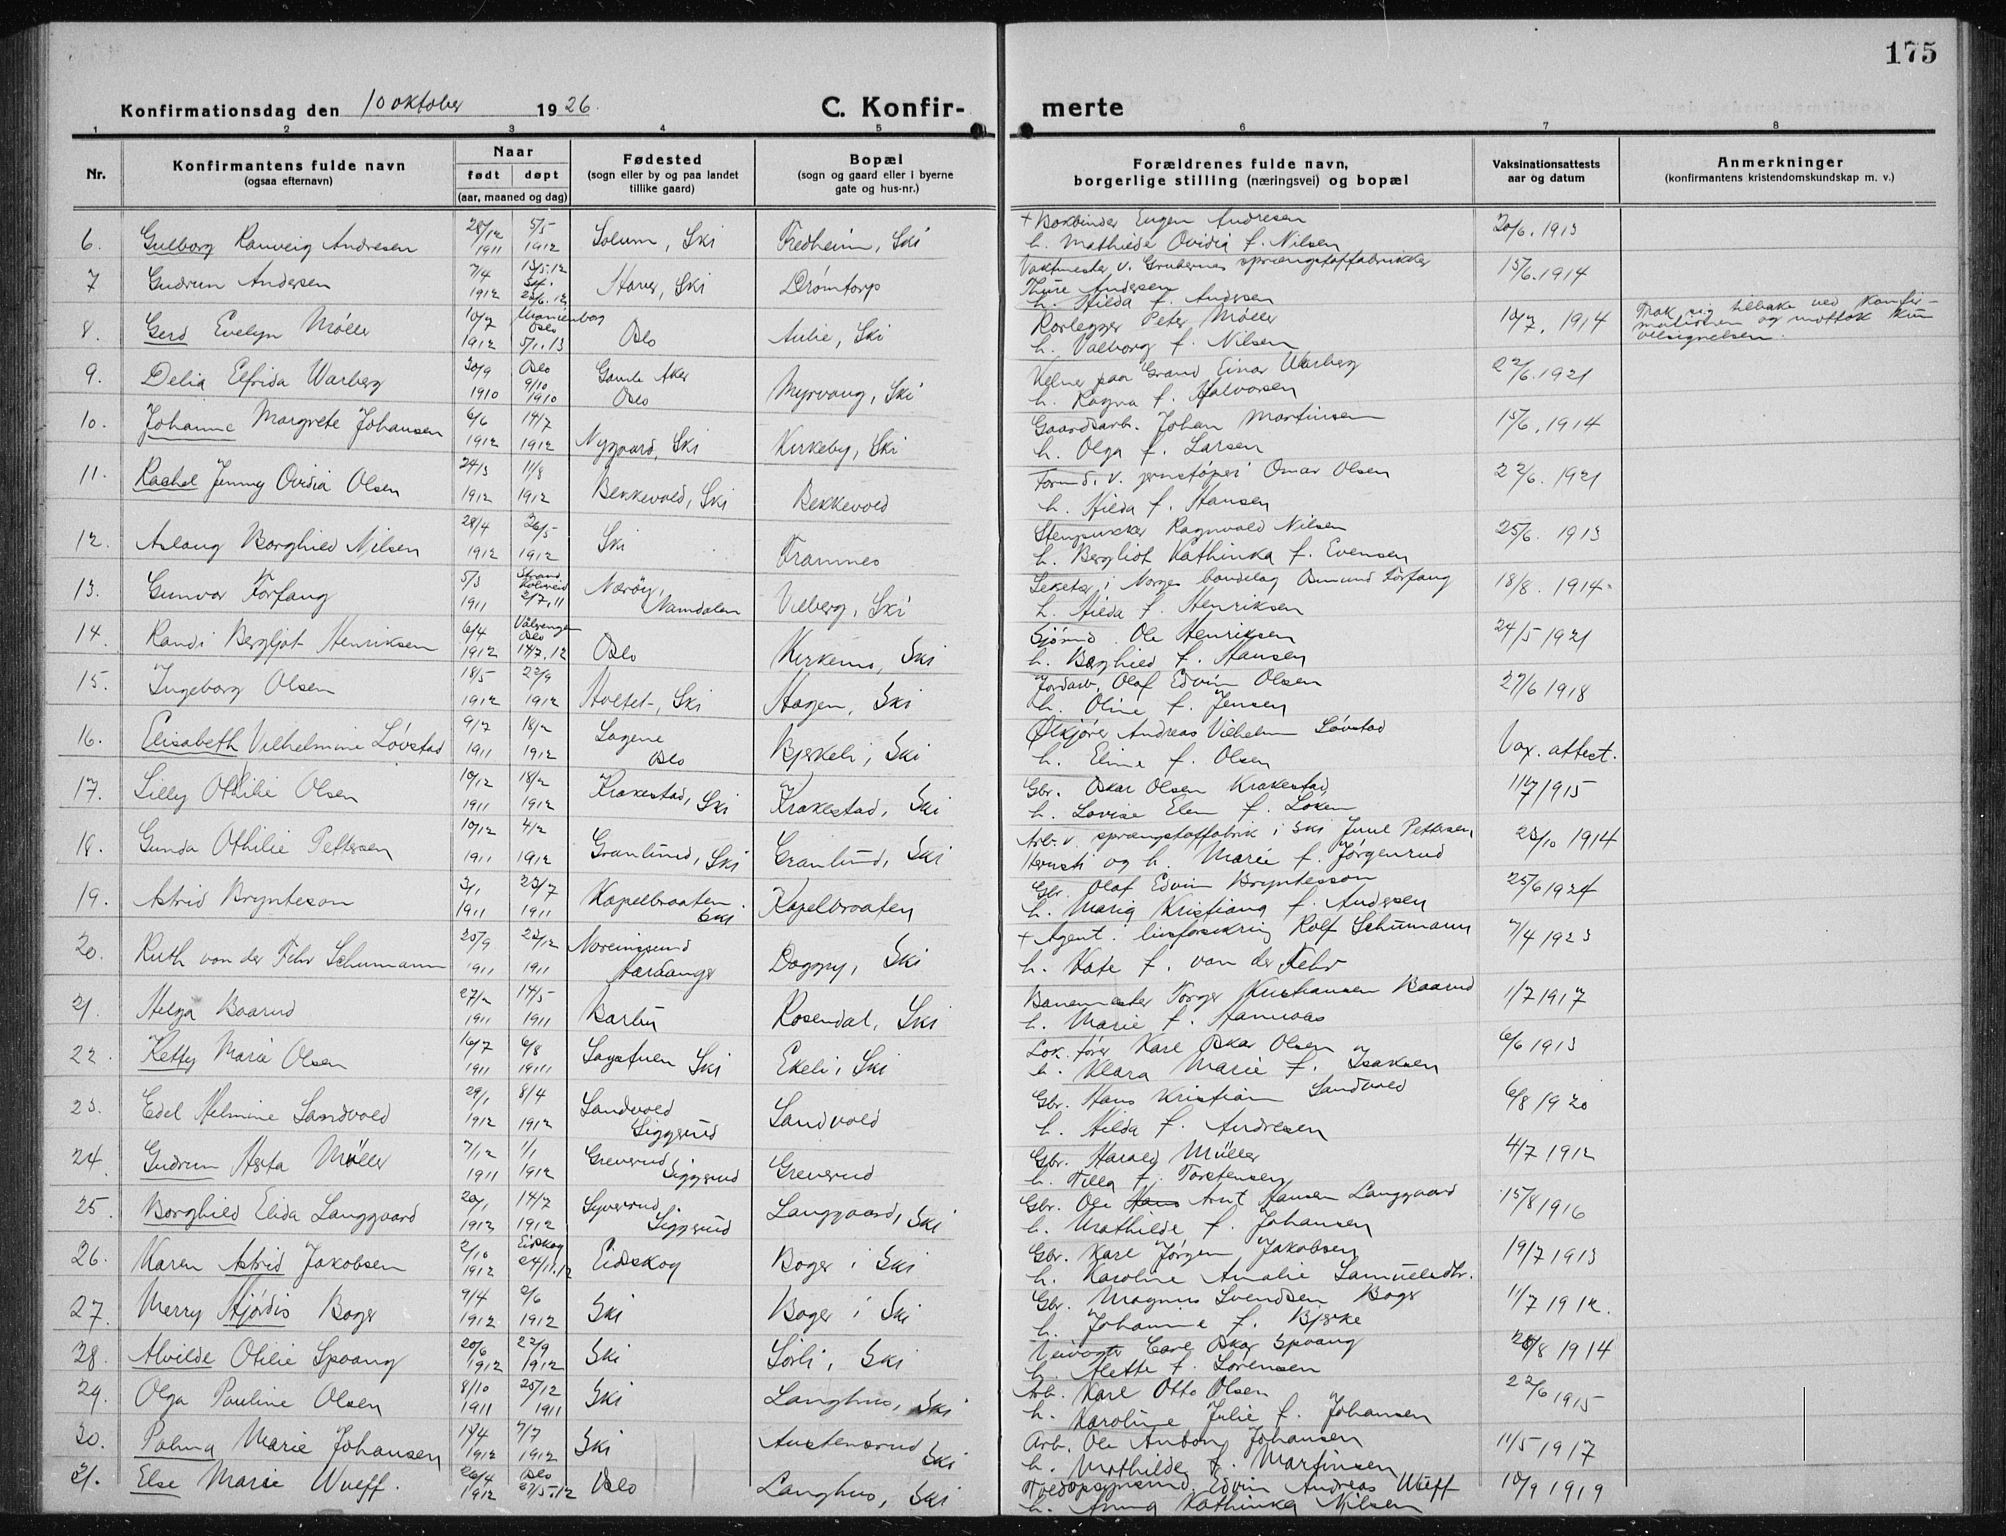 175
Konfirmationsdag den 10 oktober 1926.
C. Konfir- merte
1 2 3 4 5 6 7 8
Nr. Konfirmantens fulde navn (ogsaa efternavn) Naar født døpt (aar, maaned og dag) Fødested (sogn eller by og paa landet tillike gaard) Bopæl (sogn og gaard eller i byerne gate og hus-nr.) Forældrenes fulde navn, borgerlige stilling (næringsvei) og bopæl Vaksinationsattests aar og datum Anmerkninger (konfirmantens kristendomskundskap m. v.)
6. Gulborg Ranveig Andresen 28/12 1911 5/5 1912 Solum, Ski Fredheim, Ski + Bokbinder Eugen Andresen
h. Mathilde Ovidia f. Nilsen 20/6. 1913
7 Gudrun Andersen 7/4 1912 Ski Drømtorp Vaktmester v. Grubernes sprængstoffabrikker
Thure Andersen
h. Hilda f. Andersen 15/6. 1914
8. Gerd Evelyn Møller 10/7 1912 Uranienborg Oslo 5/1. 13 Oslo Aulie, Ski Rørlegger Peter Møller
h. Valborg f. Nilsen 10/7. 1914 Trak sig tilbake ved konfir-
mationen og mottok kun
velsignelsen.
9. Delia Elfrida Warberg 30/9 1910 Oslo 9/10 1910 Gamle Aker Oslo Myrvang, Ski Kelner paa Grand Einar Warberg
h. Ragna f. Halvorsen 22/6. 1921
10. Johanne Margrete Johansen 6/6 1912 14/7 1912 Nygaard, Ski Kirkeby, Ski Gaardsarb. Johan Martinsen
h. Olga f. Larsen 15/6. 1914
11. Rachel Jenny Ovidia Olsen 24/3 1912 11/8 1912 Bekkevold, Ski Bekkevold Formd. v. jernstøperi Omar Olsen
h. Hilda f. Hansen 22/6. 1921
12. Aslaug Borghild Nilsen 28/4 1912 26/5 1912 Ski Framnes Stenpukker Ragnvald Nilsen
h. Bergliot Kathinka f. Evensen 25/6. 1913
13. Gunvor Forfang 5/3 1911 Strand Kolvereid 2/7. 11 Nærøy, Namdalen Vilberg, Ski Sekretær i Norges bondelag Osmund Forfang
h. Hilda f. Henriksen 18/8. 1914
14. Randi Bergljot Henriksen 6/4 1912 Vålerengen Oslo 14/7. 12 Oslo Kirkemo, Ski Sjømd. Ole Henriksen
h. Borghild f. Hansen 24/5 1921
15. Ingeborg Olsen 18/5 1912 22/9 1912 Holtet, Ski Hagen, Ski Jordarb. Olaf Edvin Olsen
h. Oline f. Jensen 27/6 1918
16. Elisabeth Vilhelmine Løvstad 9/7 1911 18/2 1912 Sagene Oslo Bjerkeli, Ski Ølkjører Andreas Vilhelm Løvstad
h. Eline f. Olsen Vax. attest.
17. Lilly Othilie Olsen 10/12 1911 18/2 1912 Krakestad, Ski Krakestad, Ski Gbr. Oskar Olsen Krakestad
h. Lovise Elen f. Løken 11/7 1915
18. Gunda Othilie Pettersen 10/12 1911 4/2 1912 Granlund, Ski Granlund, Ski Arb. v. sprængstoffabrik i Ski Juul Pettersen
og h. Marie f. Jørgenrud 23/10 1914
19. Astrid Brynteson 3/1 1911 23/7 1911 Kapelbraaten Ski Kapelbraaten Gbr. Olaf Edvin Bryntesson
h. Maria Kristiana f. Andersen 25/6 1924
20. Ruth von der Fehr Schumann 25/9 1911 1911 Noreimsund Hardanger Ski + Agent i livsforsikring Rolf Schumann
h. Kate f. von der Fehr 7/4 1923
21. Helga Baarud 27/2 1911 14/5 1911 Barbu Rosendal, Ski Banemester Torger Kristiansen Baarud
h. Marie f. Hannaas 1/7 1917
22. Ketty Marie Olsen 16/7 1911 6/8 1911 Sagstuen Ski Ekeli, Ski Lok. fører Karl Oskar Olsen
h. Klara Marie f. Isaksen 6/6 1913
23. Edel Helmine Sandvold 29/1 1912 8/4 1912 Sandvold Siggerud Sandvold Gbr. Hans Kristian Sandvold
h. Hilda f. Andresen 6/8 1920
24. Gudrun Asta Møller 7/12 1911 1/1 1912 Greverud Siggerud Greverud Gbr. Harald Müller
h. Tilla f. Torstensen 4/7 1912
25. Borghild Elida Langgaard 20/1 1912 14/7 1912 Syverud Siggerud Langgaard, Ski Gbr. Ole Hans Arnt Hansen Langgaard
h. Mathilde f. Johansen 15/8 1916
26. Karen Astrid Jakobsen 2/10 1912 Eidskog 24/11. 12 Eidskog Boger i Ski Gbr. Karl Jørgen Jakobsen
h. Karoline Amalie Samuelsdtr. 19/7 1913
27. Merry Hjørdis Boger 9/4 1912 2/6 1912 Ski Boger i Ski Gbr. Magnus Svendsen Boger
h. Johanne f. Bjerke 11/7 1912.
28. Alvilde Otilie Spoang 20/6 1912 22/9 1912 Ski Sørli, Ski Veivogter Carl Oskar Spoang
h. Mette f. Sørensen 1914
29. Olga Pauline Olsen 8/10 1911 25/12 1911 Ski Langhus, Ski Arb. Karl Otto Olsen
h. Karoline Julie f. Johansen 22/6 1915
30. Palma Marie Johansen 14/4 1912 7/7 1912 Ski Austensrud Ski Arb. Ole Anton Johansen
h. Mathilde f. Martinsen 11/5 1917
31. Else Marie Wulff. 26/4 1912 Oslo 27/5. 12 Oslo Langhus, Ski Edvin Andreas Wulff
h. Anna Kathinka Nilsen 10/9 1919